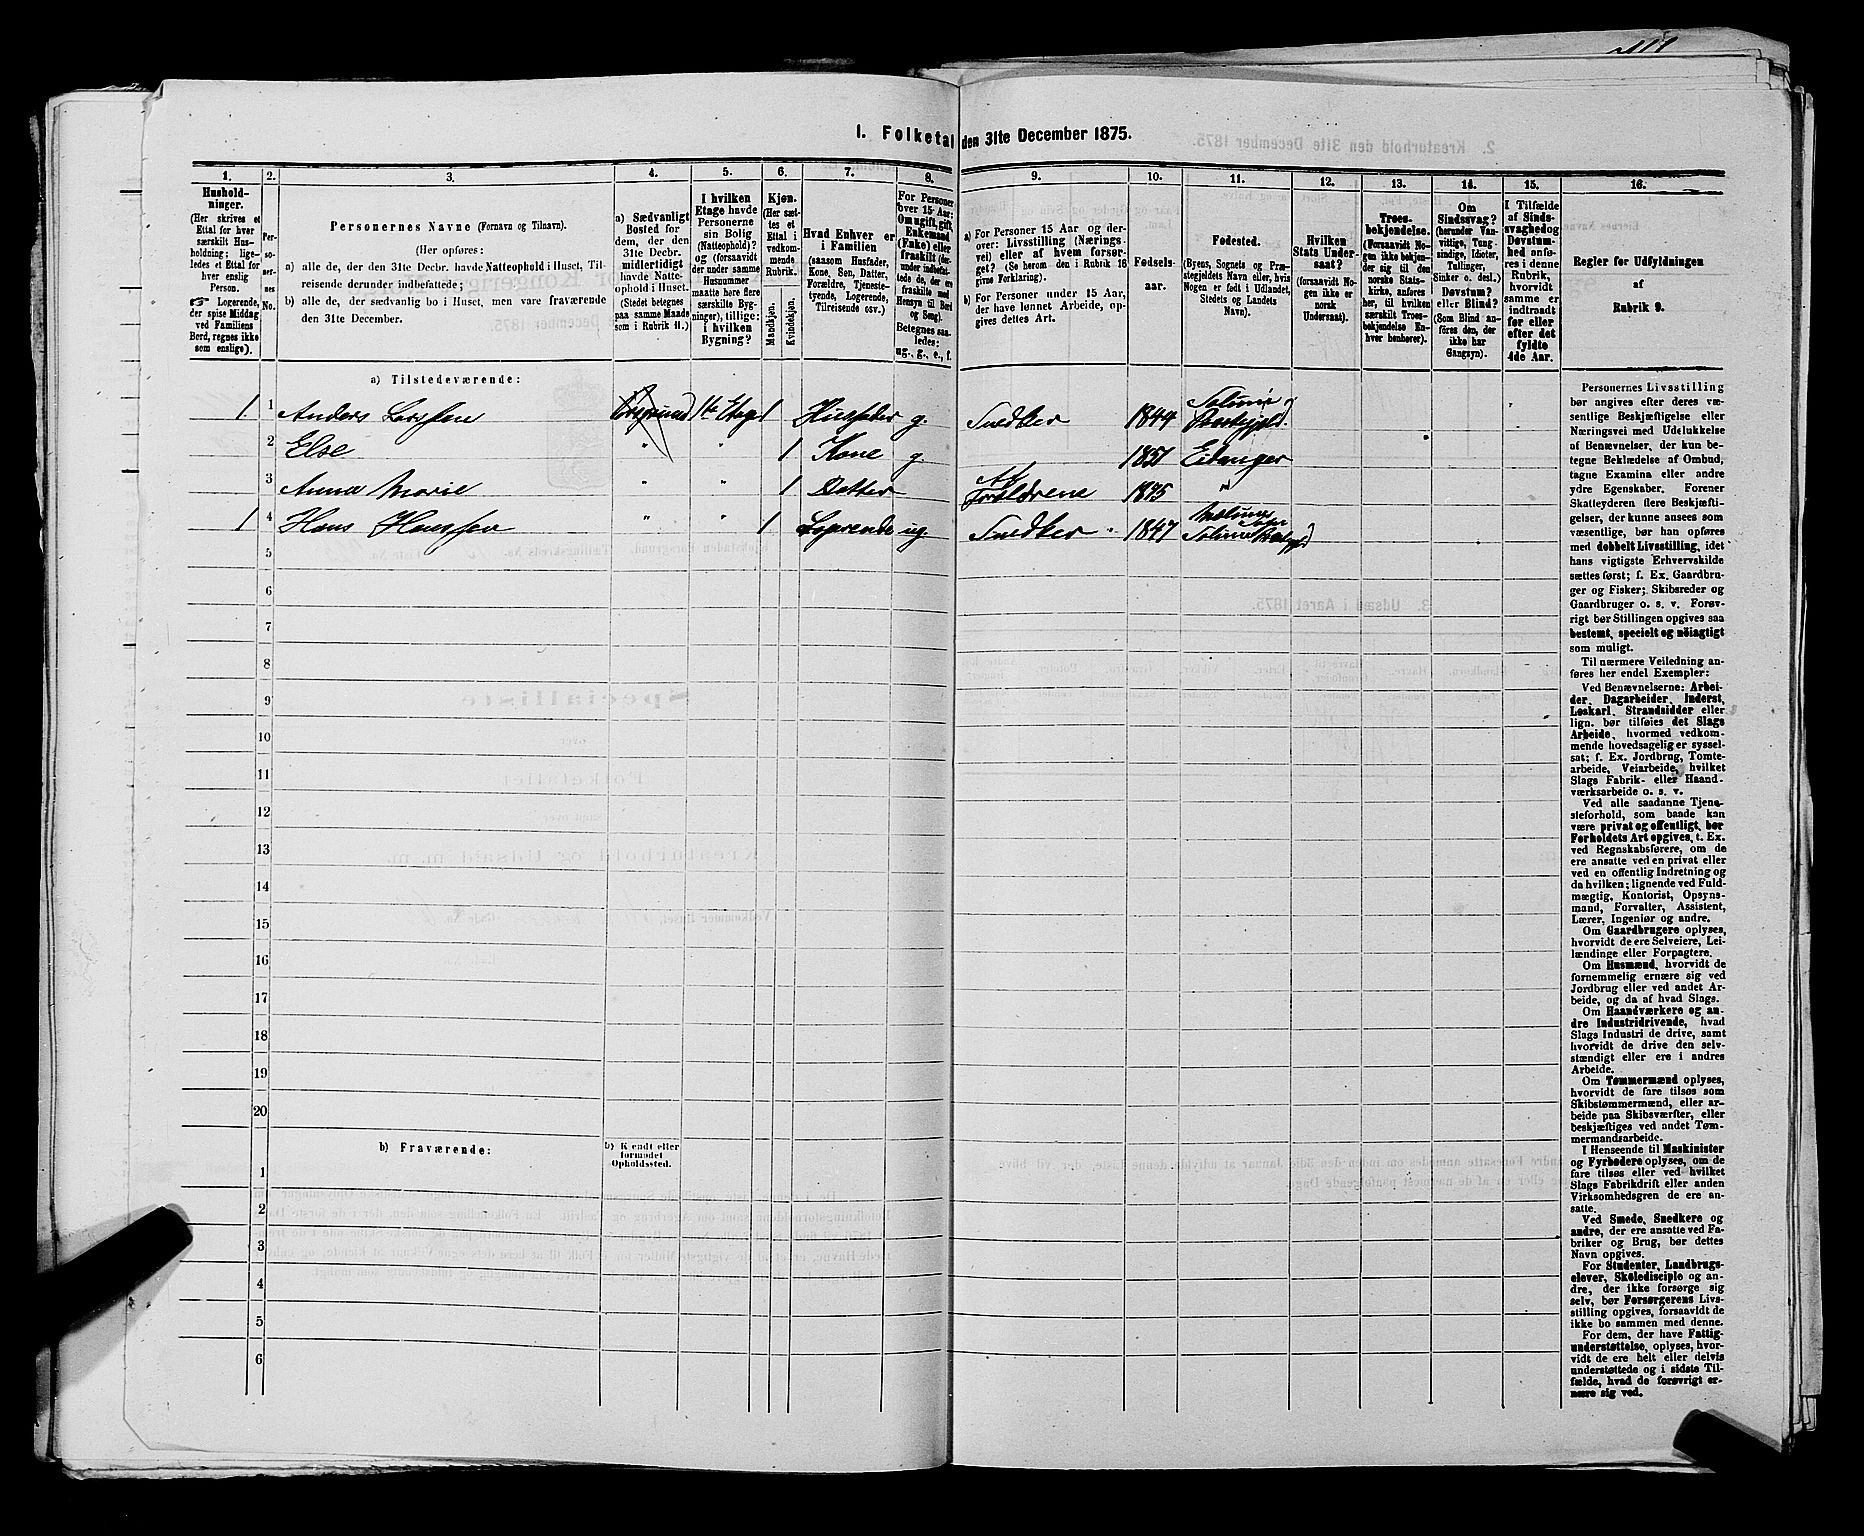 I. Folketal den 31te December 1875.
1.
Hushold-
ninger.
(Her skrives et
Ettal for hver
særskilt Hus-
holdning; lige-
ledes et Ettal for
hver enslig
Person.
☞ Logerende,
der spise Middag
ved Familiens
Bord, regnes ikke
som enslige).
2.
Per-
so-
ner-
nes
No.
3.
Personernes Navne (Fornavn og Tilnavn).
(Her opføres:
a) alle de, der den 31te Decbr. havde Natteophold i Huset, Til-
reisende derunder indbefattede;
b) alle de, der sædvanlig bo i Huset, men vare fraværende
den 31te December.
4.
a) Sædvanligt
Bosted for
dem, der den
31te Decbr.
midlertidigt
havde Natte-
ophold i Huset.
(Stedet betegnes
paa samme Maade
som i Rubrik 11.)
5.
I hvilken
Etage havde
Personerne
sin Bolig
(Natteophold)?
og (forsaavidt
der under samme
Husnummer
maatte høre flere
særskilte Byg-
ninger), tillige:
i hvilken
Bygning?
6.
Kjøn.
(Her sæt-
tes et
Ettal i
vedkom-
mende
Rubrik.)
Mandkjøn.
Kvindekjøn.
7.
Hvad Enhver er
i Familien
(saasom Husfader,
Kone, Søn, Datter,
Forældre, Tjeneste-
tyende, Logerende,
Tilreisende osv.)
8.
For Personer
over 15 Aar:
Om ugift, gift,
Enkemand
(Enke) eller
fraskilt (der-
under indbefat-
tede de, der ere
fraskilte med
Hensyn til Bord
og Seng).
Betegnes saa-
ledes:
ug., g., e., f.
9.
a) For Personer 15 Aar og der-
over: Livsstilling (Nærings-
vei) eller af hvem forsør-
get? (Se herom den i Rubrik 16
givne Forklaring).
b) For Personer under 15 Aar,
der have lønnet Arbeide, op-
gives dettes Art.
10.
Fødsels-
aar.
11.
Fødested.
(Byens, Sognets og Præ-
stegjeldets Navn eller, hvis
Nogen er født i Udlandet,
Stedets og Landets
Navn).
12.
Hvilken
Stats Under-
saat?
(forsaavidt No-
gen ikke er
norsk
Undersaat).
13.
Troes-
bekjendelse.
(Forsaavidt No-
gen ikke bekjen-
der sig til den
norske Stats-
kirke, anføres
her, til hvilken
særskilt Troes-
bekjendelse En-
hver henhører).
14.
Om
Sindssvag?
(herunder Van-
vittige, Tung-
sindige, Idioter,
Tullinger,
Sinker o. desl.)
Døvstum?
eller Blind?
(Som Blind an-
føres den, der
ikke har
Gangsyn).
15.
I Tilfælde
af Sinds-
svaghed og
Døvstum-
hed anfø-
res i denne
Rubrik,
hvorvidt
samme er
indtraadt
før eller
efter det
fyldte
4de Aar.
16.
Regler for Udfyldningen
af
Rubrik 9.
a) Tilstedeværende:
1. 1 Anders Larssen Porsgrund 1te Etage 1 Husfader g. Snedker 1844 Solum Præstegjeld.
2 Else " " 1 Kone g. 1851 Eidanger
3 Anna Marie " " 1 Datter Af Forældrene 1875 "
1 4 Hans Hanssen " " 1 Logerende ug. Snedker 1847 Solum
5
6
7
8
9
10
11
12
13
14
15
16
17
18
19
20
b) Fraværende:
b) Kjendt eller
formodet
Opholdssted.
1
2
3
4
5
6
Personernes Livsstilling
bør angives efter deres væ-
sentlige Beskjæftigelse eller
Næringsvei med Udelukkelse
af Benævnelser, der kun be-
tegne Beklædelse af Ombud,
tagne Examina eller andre
ydre Egenskaber. Forener
Skatteyderen flere Beskjæfti-
gelser, der kunne ansees som
væsentlige, bør han opføres
med dobbelt Livsstilling, idet
hans vigtigste Erhvervskilde
sættes først; f. Ex. Gaardbru-
ger og Fisker; Skibsreder og
Gaardbruger o. s. v. Forøv-
rigt bør Stillingen opgives saa
bestemt, specielt og nöiagtigt
som muligt.
Til nærmere Veiledning an-
føres her endel Exempler:
Ved Benævnelserne: Arbei-
der, Dagarbeider, Inderst,
Løskarl, Strandsidder eller
lign. bør tilføies det Slags
Arbeide, hvormed vedkom-
mende hovedsagelig er syssel-
sat; f. Ex. Jordbrug, Tomte-
arbeide, Veiarbeide, hvilket
Slags Fabrik- eller Haand-
værksarbeide o. s. v.
Ved alle saadanne Tjene-
steforhold, som baade kan
være privat og offentligt, bør
Forholdets Art opgives, t. Ex.
ved Regnskabsførere, om de
ere ansatte ved en privat eller
ved en offentlig Indretning og
da hvilken; lignende ved Fuld-
mægtig, Kontorist, Opsyns-
mand, Forvalter, Assistent,
Lærer, Ingeniør og andre.
Om Gaardbrugere oplyses,
hvorvidt de ere Selveiere, Lei-
lændinge eller Forpagtere.
Om Husmænd, hvorvidt de
fornemmelig ernære sig ved
Jordbrug eller ved andet Ar-
beide, og da af hvad Slags.
Om Haandværkere og an-
dre Industridrivende, hvad
Slags Industri de drive, samt
hvorvidt de drive den selv-
stændigt eller ere i andres
Arbeide.
Om Tømmermænd oplyses,
hvorvidt de fare tilsøs som
Skibstømmermænd, eller ar-
beide paa Skibsværfter, eller
beskjæftiges ved andet Tøm-
mermandsarbeide.
I Henseende til Maskinister
og Fyrbødere oplyses, om de
fare tilsøs eller ved hvilket
Slags Fabrikdrift eller anden
Virksomhedsgren de ere an-
satte.
Ved Smede, Snedkere og
andre, der ere ansatte ved Fa-
briker og Brug, bør dettes
Navn opgives.
For Studenter, Landbrugs-
elever, Skoledisciple og an-
dre, der ikke forsørge sig
selv, bør Forsørgerens Livs-
stilling opgives, forsaavidt de
ikke bo sammen med denne.
For dem, der have Fattig-
understøttelse, oplyses, hvor-
vidt de ere helt eller delvis
understøttede og i sidste Til-
fælde, hvad de forøvrigt er-
nære sig ved.